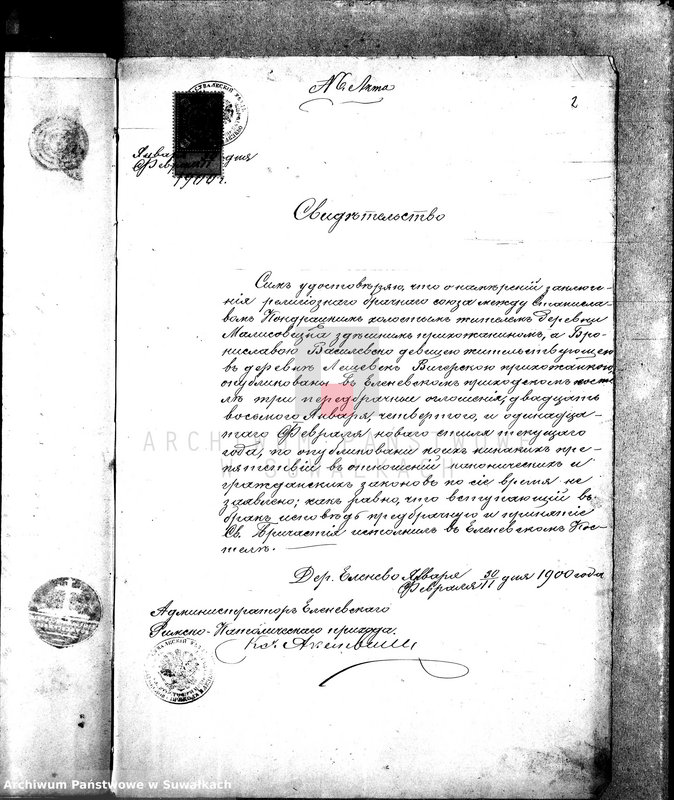 № Акта
2
Января
Февраля 11 дня
1900 г.
Свидѣтельство
Симъ удостовѣряю, что о намѣреній заключе-
нія религіознаго брачнаго союза между Станисла-
вомъ Кондрацкимъ холостымъ жителемъ деревни
Малисовизна здѣшнимъ прихожаниномъ, а Бро-
ниславою Василевско девицею жительствующею
въ деревнѣ Лещевекъ Вигерскою прихожанкою,
опубликованы въ Еленевскомъ приходскомъ косте-
лѣ три передбрачныя оглошенія; двадцать
восьмого Января, четвертого, и одинадца-
таго Февраля новаго стиля текущаго
года, по опубликовани коихъ никакихъ пре-
пятствій въ отношеній каноническихъ и
гражданскихъ законовъ по сіе время не
заявлено; какъ равно, что вступающій въ
бракъ исповѣдь предбрачную и принятіе
Св. Причастія исполнилъ въ Еленевскомъ Кос-
телѣ.
Дер. Еленево Января 30
Февраля 11 дня 1900 года
Администраторъ Еленевскаго
Римско-Католическаго прихода.
Кс.
ARCHIWUM PAŃSTWOWE
W SUWAŁKACH
Archiwum Państwowe w Suwałkach